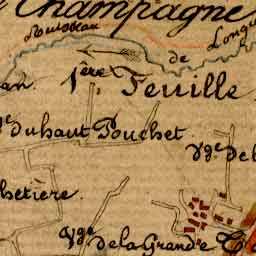 Champagne
Ruisseau
Longu
de
1ère Feuille.
an.
du haut Pouchet.
Vge de l
hetière.
Vge de la Grande C